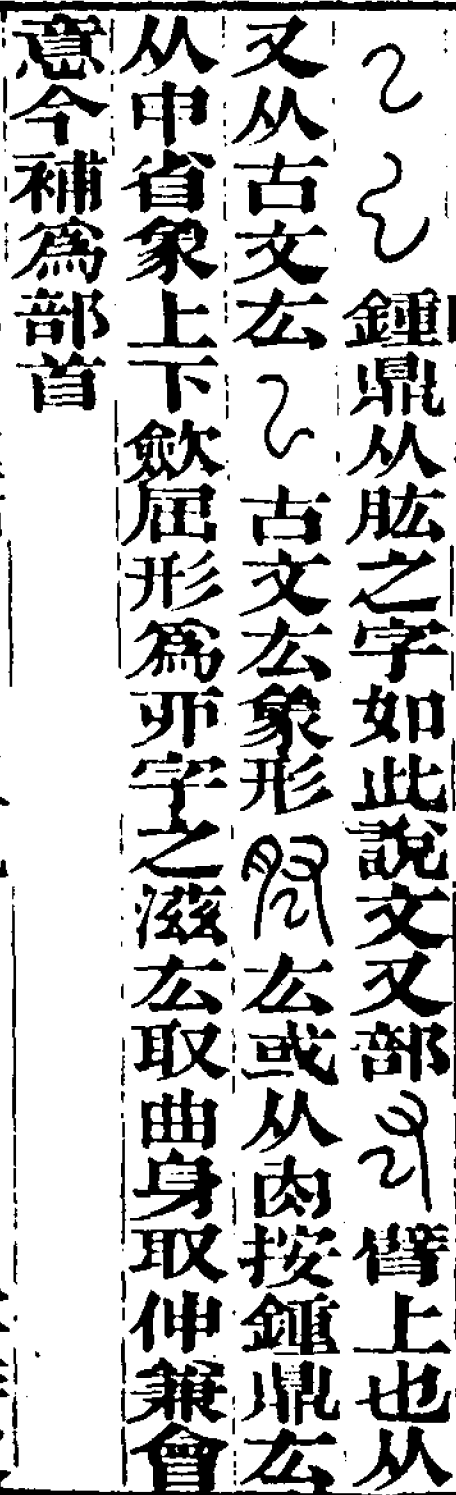 鍾鼎从肱之字如此說文又部臂上也从
又从古文厷古文厷象形厷或从肉按鍾鼎厷
从申省象上下歛屈形爲字之滋厷取曲身取伸兼會
意今補爲部首